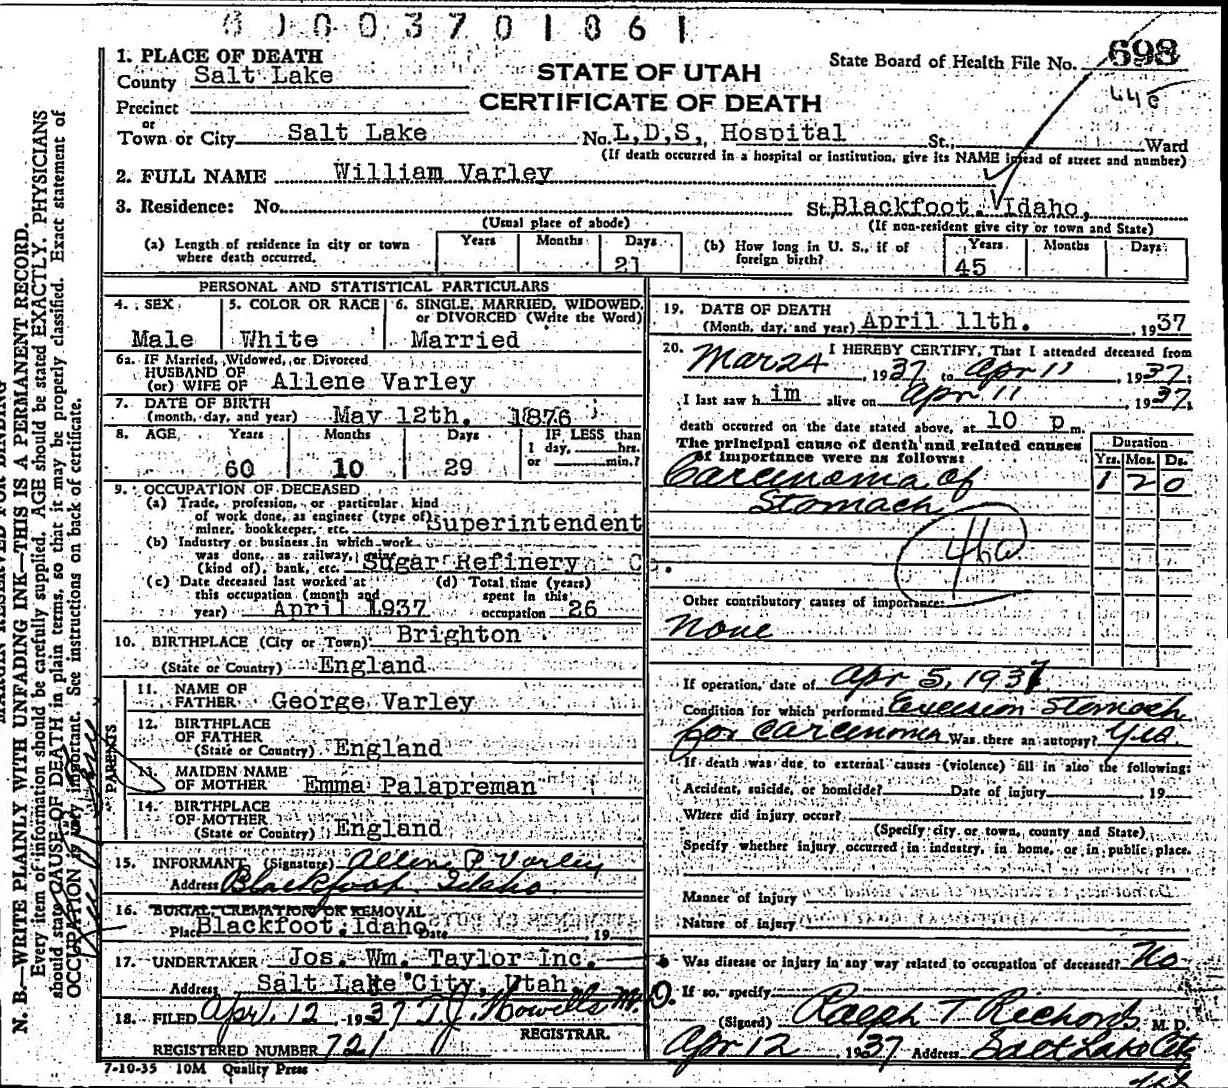 0 0 0 3 7 0 1 8 6 1
State Board of Health File No. 698
STATE OF UTAH
CERTIFICATE OF DEATH
1. PLACE OF DEATH
County Salt Lake
Precinct
or
Town or City Salt Lake No. L,D,S, Hospital St., Ward
(If death occurred in a hospital or institution, give its NAME instead of street and number)
2. FULL NAME William Varley
3. Residence: No. St. Blackfoot. Idaho,
(Usual place of abode) (If non-resident give city or town and State)
(a) Length of residence in city or town where death occurred. Years Months Days 21
(b) How long in U. S., if of foreign birth? Years 45 Months Days
PERSONAL AND STATISTICAL PARTICULARS
4. SEX Male
5. COLOR OR RACE White
6. SINGLE, MARRIED, WIDOWED, or DIVORCED (Write the Word) Married
6a. IF Married, Widowed, or Divorced
HUSBAND OF
(or) WIFE OF Allene Varley
7. DATE OF BIRTH
(month, day, and year) May 12th. 1876
8. AGE Years 60 Months 10 Days 29 IF LESS than 1 day, hrs. or min.?
9. OCCUPATION OF DECEASED
(a) Trade, profession, or particular kind
of work done, as engineer (type of)
miner, bookkeeper, etc. Superintendent
(b) Industry or business in which work
was done, as railway, mine
(kind of), bank, etc. Sugar Refinery Co.
(c) Date deceased last worked at this occupation (month and year) April 1937
(d) Total time (years) spent in this occupation 26
10. BIRTHPLACE (City or Town) Brighton
(State or Country) England
PARENTS
11. NAME OF FATHER George Varley
12. BIRTHPLACE OF FATHER
(State or Country) England
13. MAIDEN NAME OF MOTHER Emma Palapreman
14. BIRTHPLACE OF MOTHER
(State or Country) England
15. INFORMANT (Signature) Allene P. Varley
Address Blackfoot, Idaho.
16. BURIAL, CREMATION OR REMOVAL
Place Blackfoot, Idaho Date 19
17. UNDERTAKER Jos. Wm. Taylor Inc.
Address Salt Lake City, Utah
18. FILED Apr. 12 1937 T. J. Howells M.D.
REGISTRAR.
REGISTERED NUMBER 721
7-10-35 10M Quality Press
19. DATE OF DEATH
(Month, day, and year) April 11th. , 1937
20. I HEREBY CERTIFY, That I attended deceased from
Mar 24, 1937, to Apr 11, 1937;
I last saw him alive on Apr 11, 1937,
death occurred on the date stated above, at 10 p m.
The principal cause of death and related causes
of importance were as follows:
Duration
Yrs. Mos. Ds.
Carcinoma of 1 2 0
Stomach
46a
Other contributory causes of importance:
None
If operation, date of Apr 5, 1937
Condition for which performed Excision Stomach
for carcinoma Was there an autopsy? Yes.
If death was due to external causes (violence) fill in also the following:
Accident, suicide, or homicide? Date of injury 19
Where did injury occur?
(Specify city or town, county and State)
Specify whether injury occurred in industry, in home, or in public place.
Manner of injury
Nature of injury
Was disease or injury in any way related to occupation of deceased? No
If so, specify
(Signed) Ralph T Richards M. D.
Apr 12 1937 Address Salt Lake City
N. B.—WRITE PLAINLY WITH UNFADING INK—THIS IS A PERMANENT RECORD.
Every item of information should be carefully supplied. AGE should be stated EXACTLY. PHYSICIANS
should state CAUSE OF DEATH in plain terms, so that it may be properly classified. Exact statement of
OCCUPATION is very important. See instructions on back of certificate.